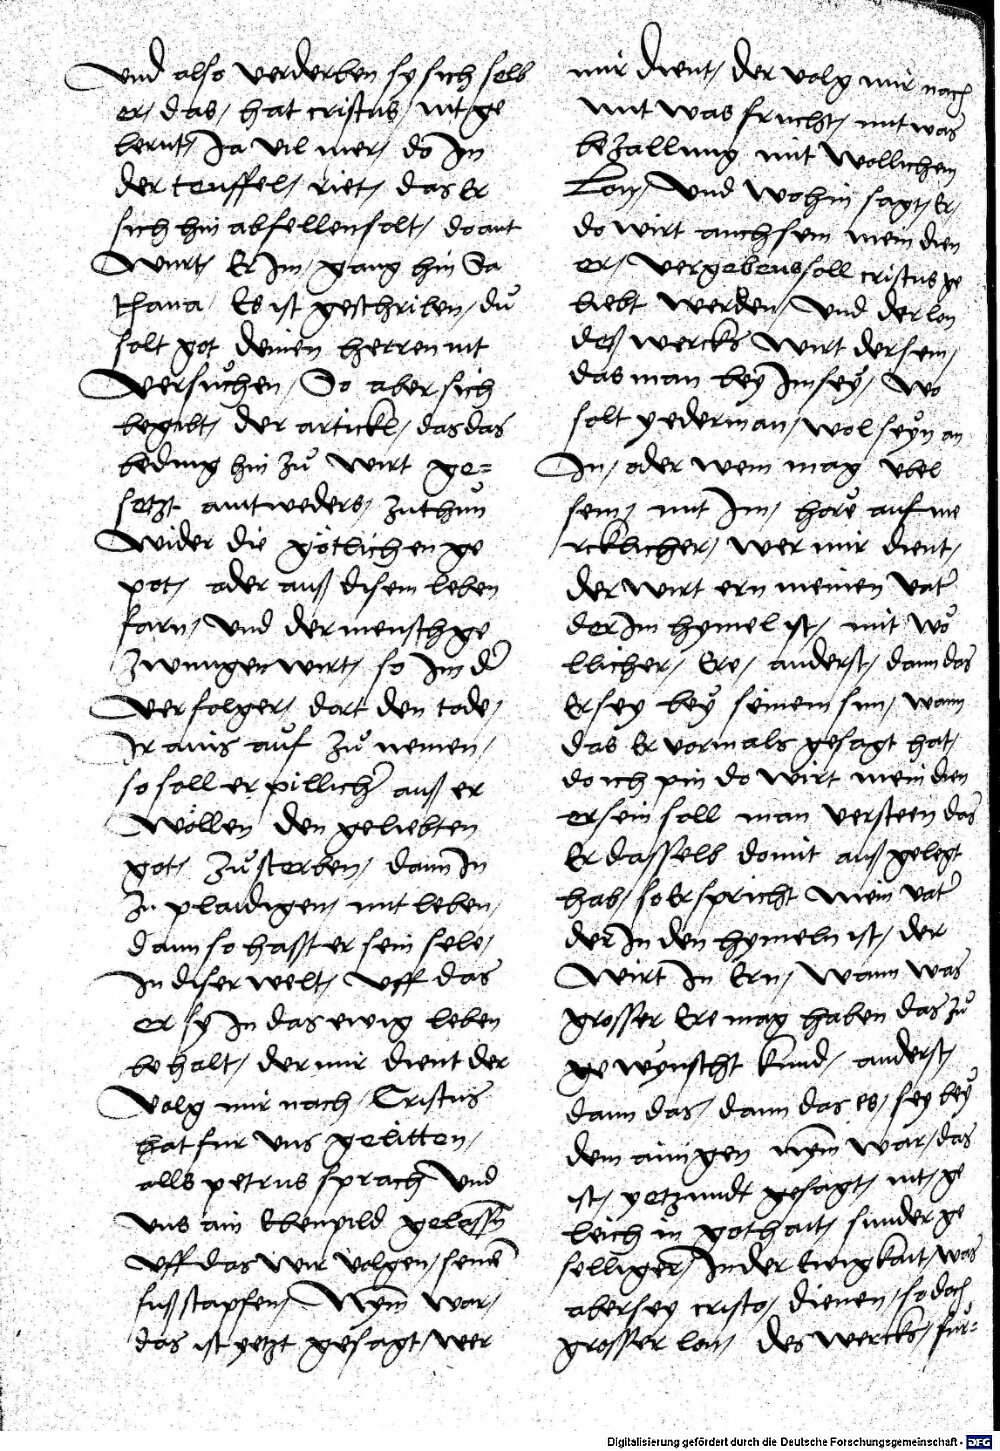 Vnd also verderben sy sich selb
er/ das/ hat cristus/ nit ge
lernt/ Ja vil mer/ do Im
der teuffel/ riet/ das Er
sich hin abfellen solt/ do ant
Wurt/ Er Im/ gang hin Sa
thana/ Es ist geschriben/ du
solt got deinen herren nit
versuchen/ So aber sich
begibt/ der artickl/ das das
beding hin zu wirt ge=
setzt antweders/ zuthun
Wider die gotlichen ge
pot/ oder auß disem leben
farn/ Vnd der mensch ge
zwungen wirt/ so Im der
verfolger/ dort den tode/
auf zu nemen/
so soll er pillicher auß er
wöllen den geliebten
got/ zu sterben/ dann In
zu plaidigen/ mit leben/
dann so hasst er sein sele/
In diser welt/ Vff das
er sy In das ewig leben
behalt/ der mir dient der
Volg mir nach/ Cristus
hat fur vns gelitten/
alls petrus sprach Vnd
vns ain Ebenpild gelassn
Vff das wir volgen/ seinen
fußstapfen/ Nym war/
das ist yetzt gesagt/ wer
mir dient/ der volg mir nach
mit was frucht/ mit was
bezallung mit wöllichem
Lon/ Vnd wohin sagt/ Er/
do wirt auch sein mein dien
er/ vergebens soll cristus ge
liebt werden/ Vnd der lon
deß wercks wirt der sein/
das man bey Im sey/ Wo
solt yederman/ wol seyn an
In/ oder wem mag vbel
sein/ mit Im/ höre auf me
rcklicher/ wer mir dient/
der wirt ern meinen vater
der Im hymel ist/ mit wö
llicher/ Ere/ anderst/ dann das
Er sey bey seinem sun/ wann
das Er vormals gesagt hat/
do ich pin do wirt mein dien
er sein soll man versteen das
Er dasselb domit außgelegt
hab/ so Er spricht Mein vater
der In den hymeln ist/ der
Wirt In Ern/ Wann was
grosser Ere mag haben das zu
gewynscht kind/ anderst/
dann das/ dann das es/ sey bey
dem ainigen nym war/ das
ist/ yetzundt gesagt/ nit/ ge
leich in gothait/ sunder ge
selliger/ In der Ewigkait/ was
aber sey cristo/ dienen/ so doch
grosser lon/ des wercks/ fur=
Digitalisierung gefördert durch die Deutsche Forschungsgemeinschaft - DFG